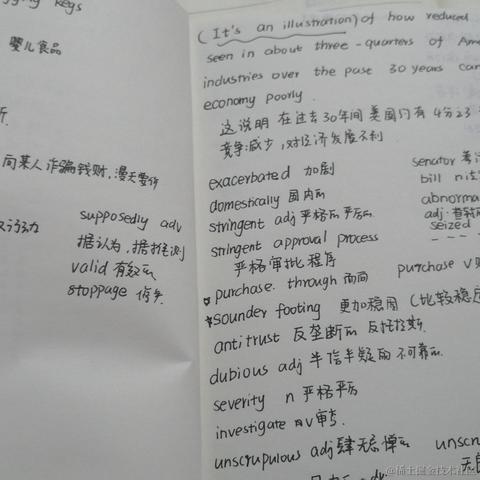 gging kegs
婴儿食品
析.
向某人诈骗钱财,漫天要价
supposedly adv
据认为,据推测
valid 有效的
stoppage 停止
(It's an illustration) of how reduced
seen in about three-quarters of Ame
industries over the past 30 years can
economy poorly.
这说明 在过去30年间 美国约有 4分之3
竞争减少,对经济发展不利
exacerbated 加剧
domestically 国内的
stringent adj 严格的 严厉的
stringent approval process
严格审批程序
purchase. through
sounder footing 更加稳固 (比较稳定
antitrust 反垄断的 反托拉斯
dubious adj 半信半疑的 不可靠的
severity n 严格 严厉
investigate v 审
unscrupulous adj 肆无忌惮的
senator 参
bill n 法
abnorma
adj.
seized
purchase v 购
unscr
@稀土掘金技术社区